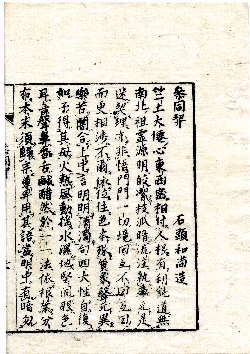 叅同契
石頭和尚造
竺土大僊心東西密相付人根有利鈍道無
南北祖靈源明皎潔枝派暗流注執事元是
迷契理亦非悟門門一切境回互不回互回
而更相涉不爾依位住色本殊質象聲元異
樂苦闇合上中言明明清濁句四大性自復
如子得其母火熱風動搖水濕地堅固眼色
耳音聲鼻香舌鹹醋然於一一法依根葉分
布本末須歸宗尊卑用其語當明中有暗勿